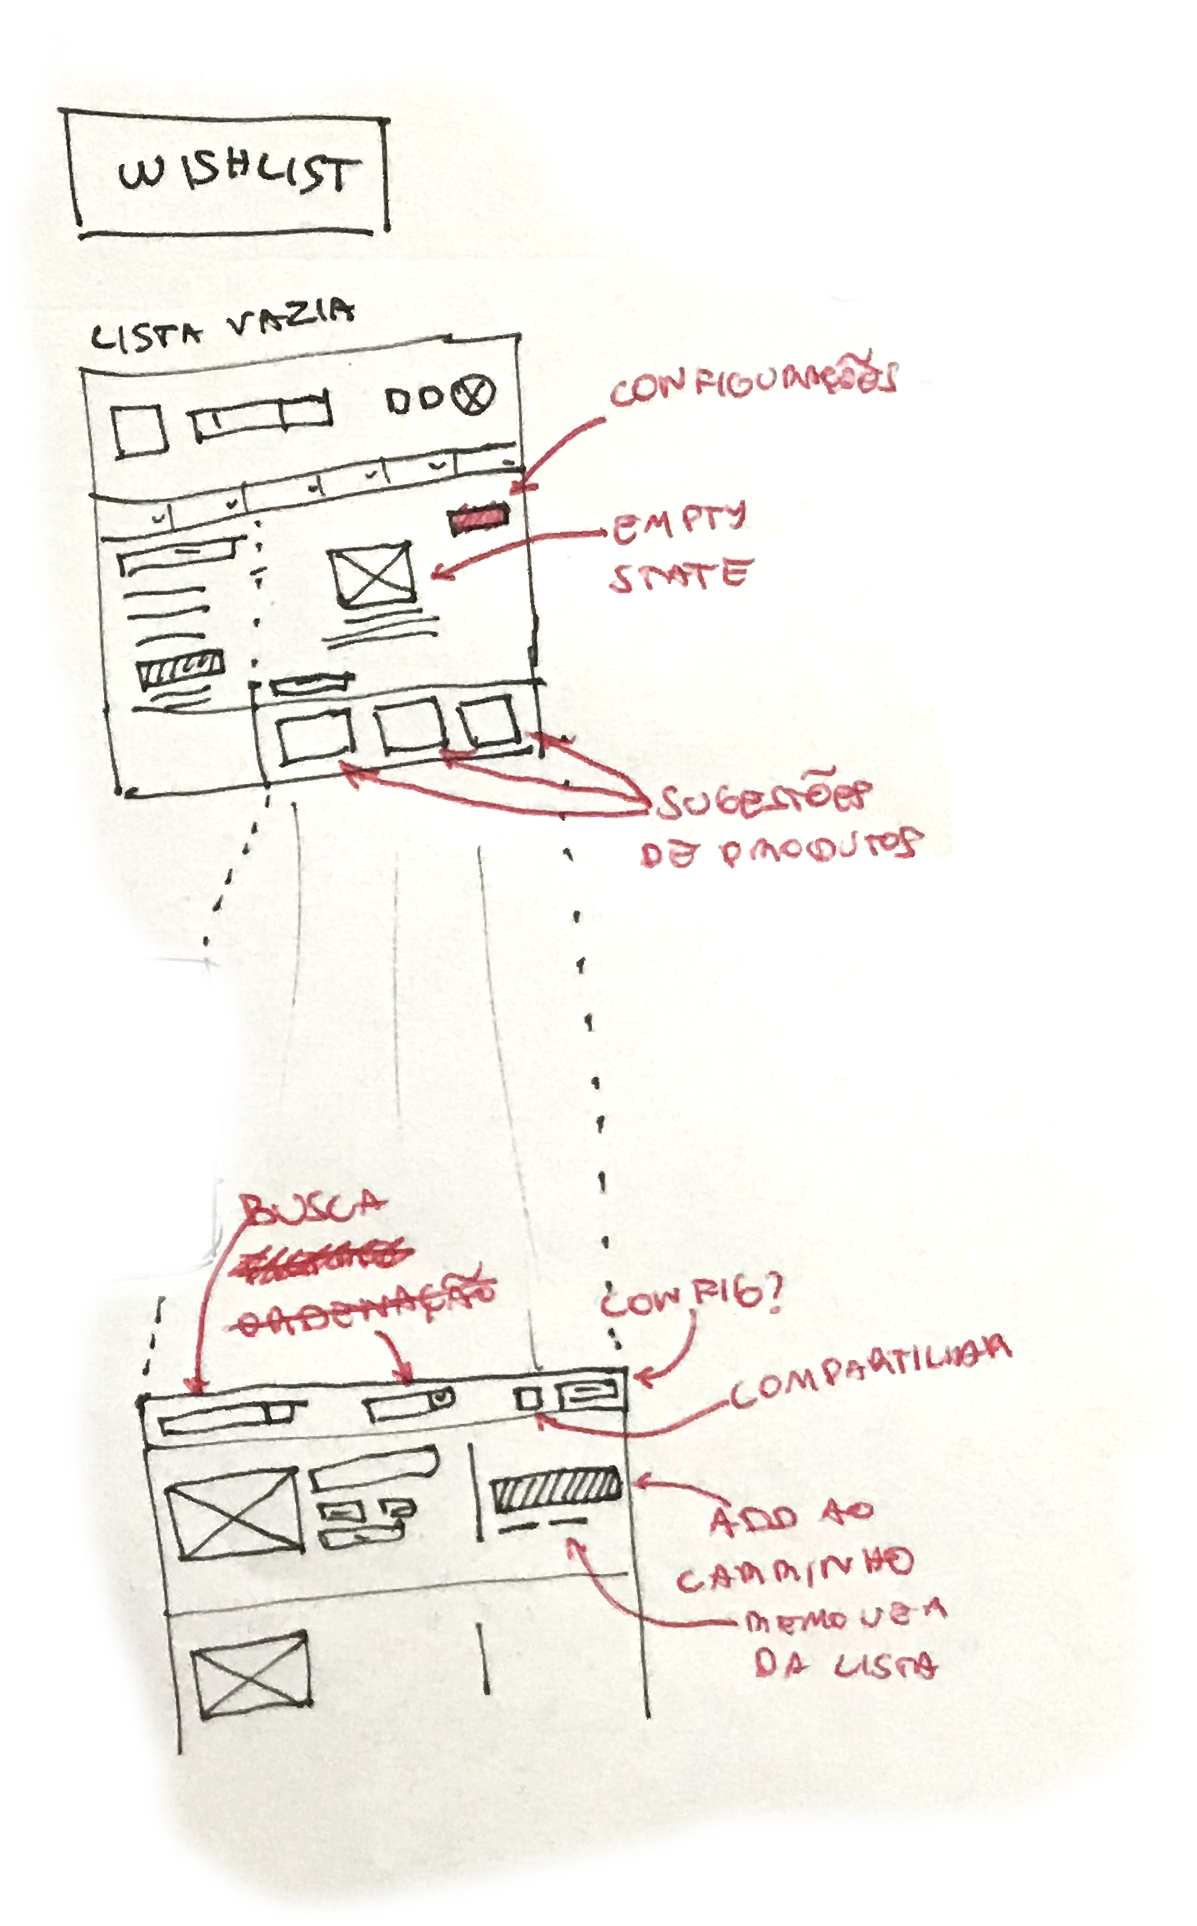 WISHLIST
LISTA VAZIA
CONFIGURAÇÕES
EMPTY
STATE
SUGESTÕES
DE PRODUTOS
BUSCA
ORDENAÇÃO
CONFIG?
COMPARTILHAR
ADD AO
CARRINHO
REMOVER
DA LISTA